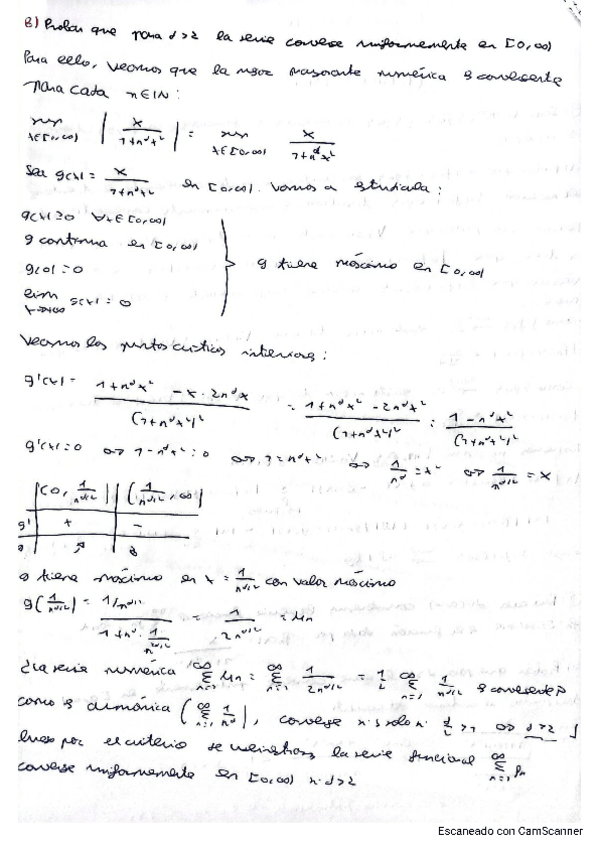 B) Probar que para α>2 la serie converge uniformemente en [0,∞)
Para ello, veamos que la mejor mayorante numérica es convergente
Para cada n∈ℕ:
sup x∈[0,∞) | x / 1+n^α x² | = sup x∈[0,∞) x / 1+n^α x²
Sea g(x) = x / 1+n^α x² en [0,∞). Vamos a estudiarla:
g(x)≥0 ∀x∈[0,∞)
g continua en [0,∞)
g(0)=0
lim x→+∞ g(x)=0
} g tiene máximo en [0,∞)
Veamos los puntos críticos interiores:
g'(x) = 1+n^α x² - x·2n^α x / (1+n^α x²)² = 1+n^α x² - 2n^α x² / (1+n^α x²)² = 1-n^α x² / (1+n^α x²)²
g'(x)=0 ⇔ 1-n^α x²=0 ⇔ 1=n^α x² ⇔ 1/n^α = x² ⇔ 1/n^α/2 = x
(0, 1/n^α/2) | (1/n^α/2, ∞)
g' | + | -
g | ↗ | ↘
g tiene máximo en x = 1/n^α/2 con valor máximo
g(1/n^α/2) = 1/n^α/2 / 1+n^α·1/n^2α/2 = 1 / 2n^α/2 = μn
¿La serie numérica ∞ Σ n=1 μn = ∞ Σ n=1 1/2n^α/2 = 1/2 ∞ Σ n=1 1/n^α/2 es convergente?
como es armónica (∞ Σ n=1 1/n^α), converge si solo si α/2 >1 ⇔ α>2
luego por el criterio de Weinstrass la serie funcional ∞ Σ n=1 fn
converge uniformemente en [0,∞) si α>2
Escaneado con CamScanner